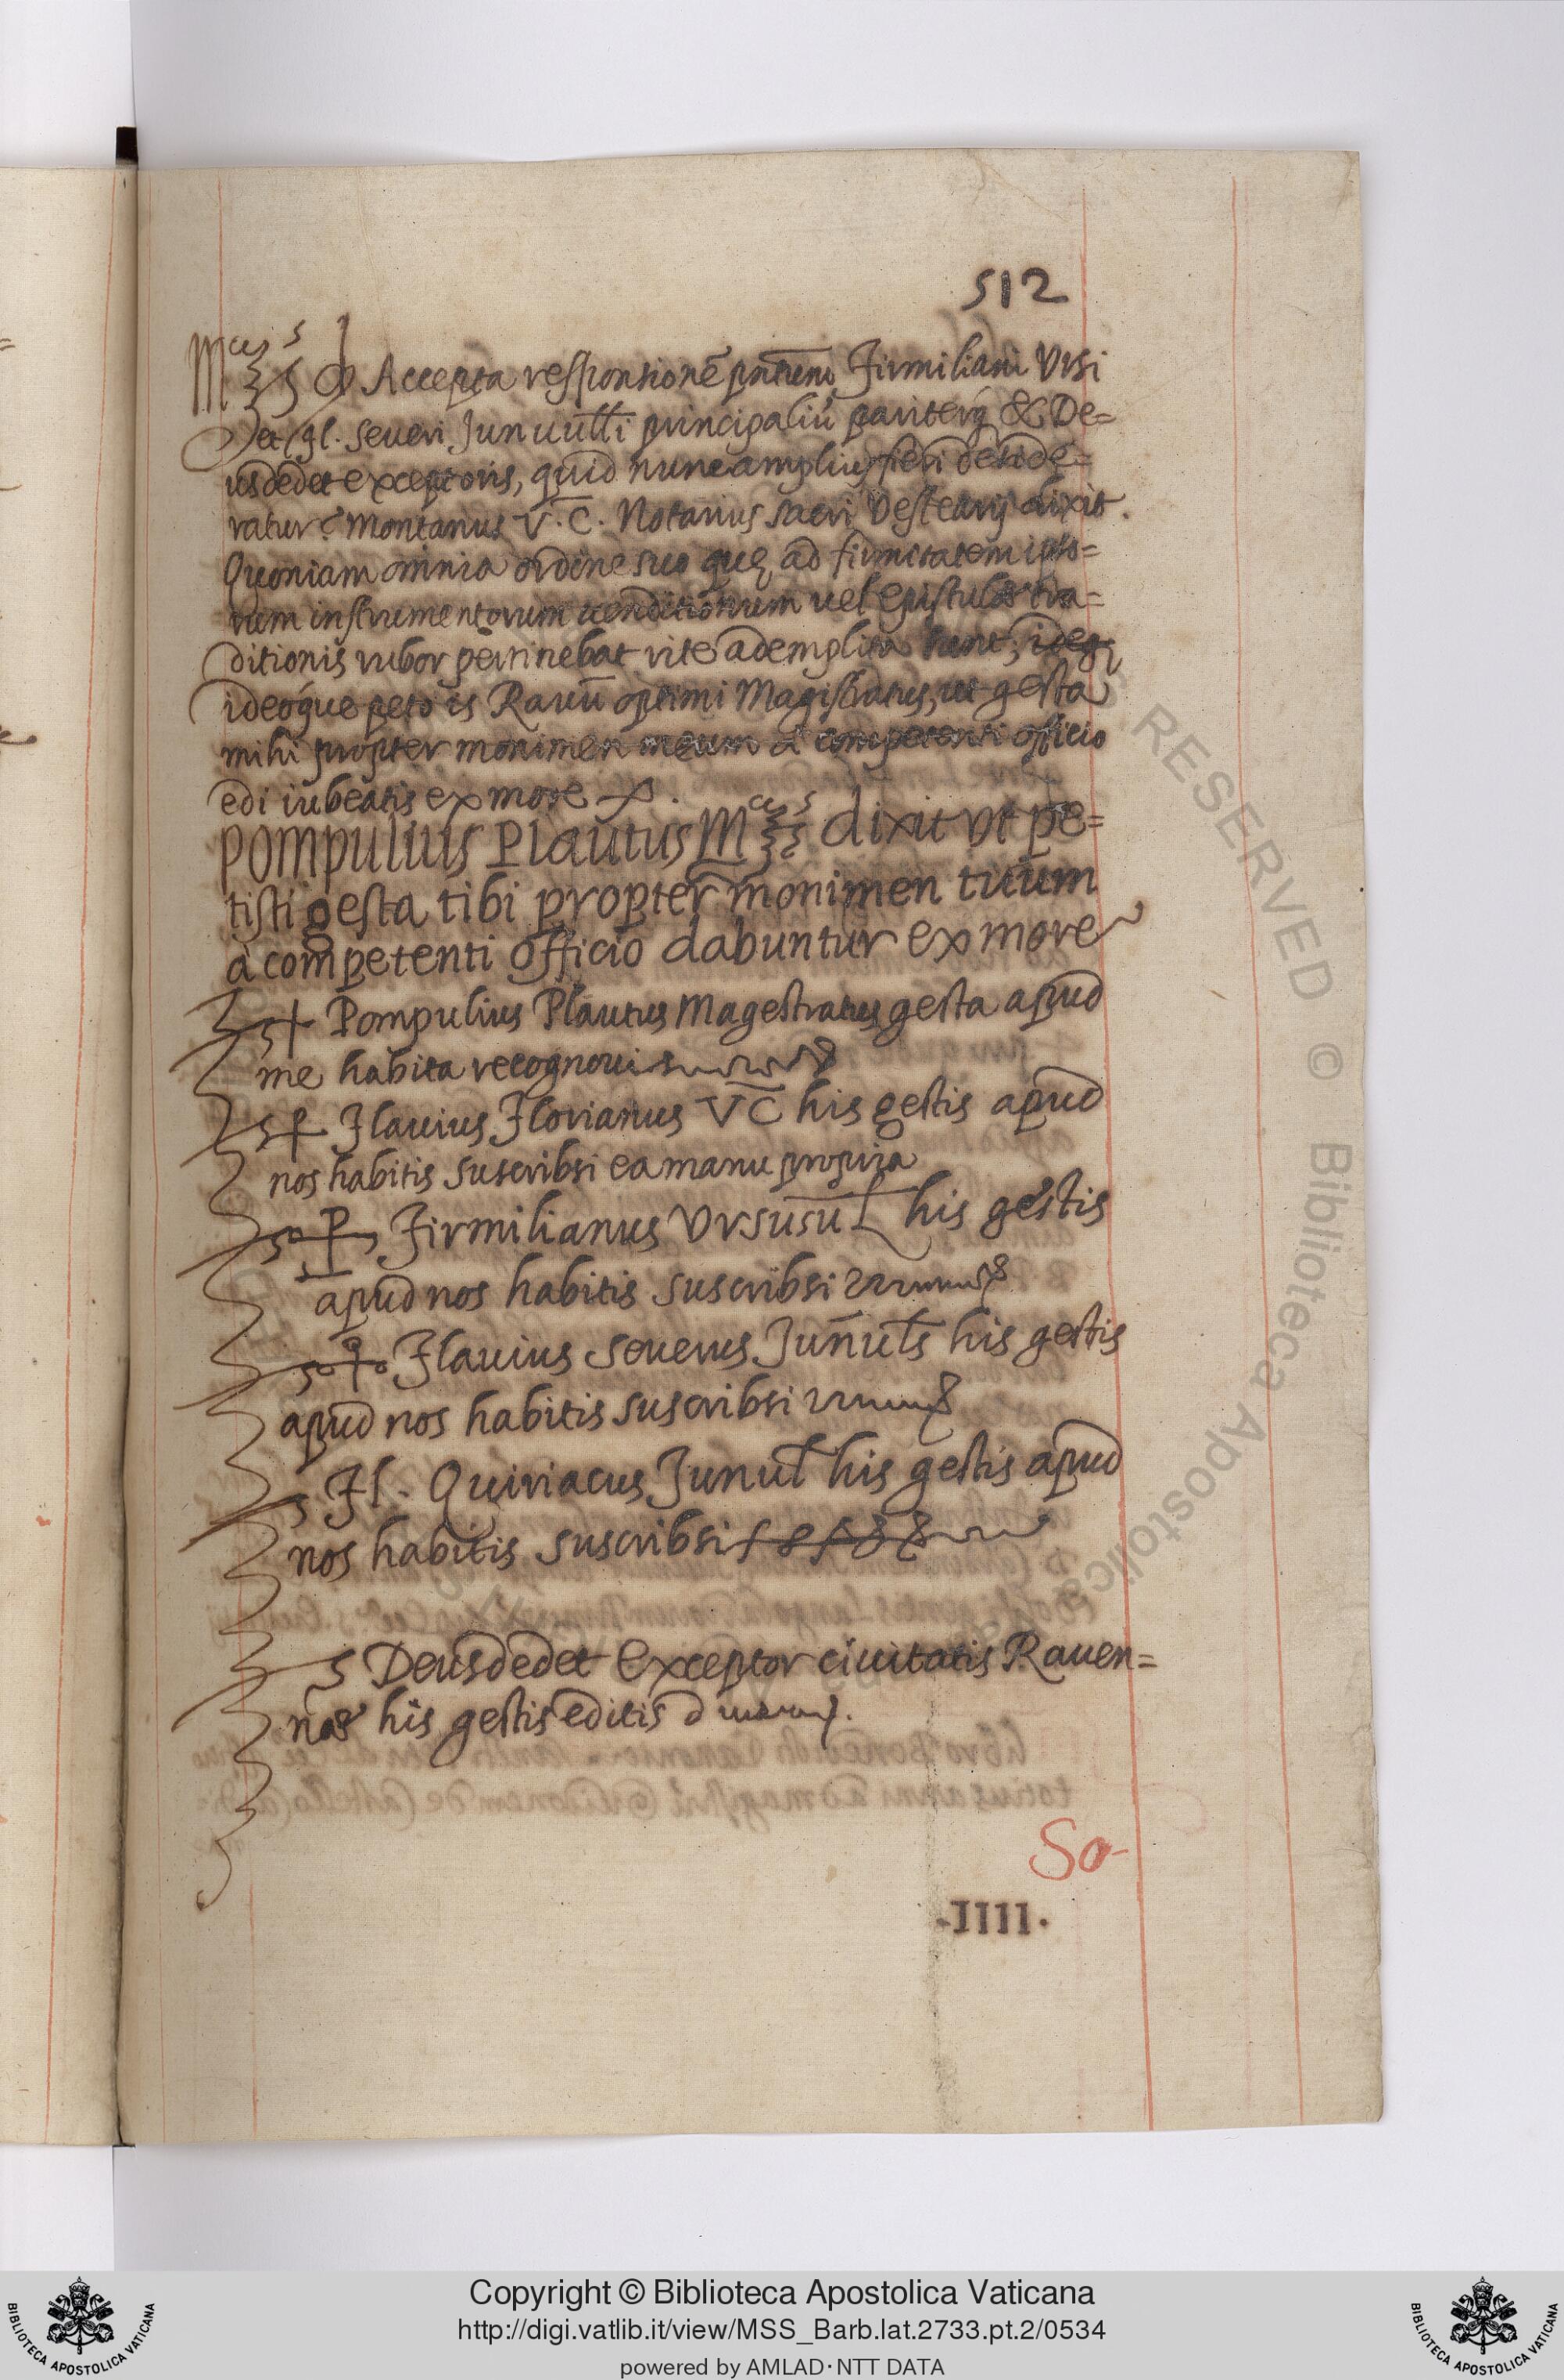 512
Accepta responsionē pn̄tium Firmiliani Vrsi
et Fl. Seueri Jun uutti principaliū pariterq & De=
usdedet exceptoris, quid nunc amplius fieri deside=
ratur? Montanus V. C. Notarius sacri Vestearij dixit.
Quoniam omnia ordine suo quę ad firmitatem ipso=
rum instrumentorum uenditionum uel epistulas tra=
ditionis rubor pertinebat rite ademplita sunt; ideq
ideoque peto is Rauū optimi Magistratus, ut gesta
mihi propter monimen meum a competenti officio
edi iubeatis ex more
POMPULIUS Plautus M dixit Vt pe=
tisti gesta tibi propter monimen tuum
a competenti officio dabuntur ex more
Pompulius Plautus Magestratus gesta apud
me habita recognoui
Flauius Florianus VC his gestis apud
nos habitis suscribsi ea manu propria
Firmilianus Vrsusul his gestis
apud nos habitis suscribsi
Flauius Seuerus Junuls his gestis
apud nos habitis suscribsi
Fl. Quiriacus Junul his gestis apud
nos habitis suscribsi
Deusdedet Exceptor ciuitatis Rauen=
nas his gestis editis
So-
.IIII.
RESERVED © Biblioteca Apostolica
Copyright © Biblioteca Apostolica Vaticana
http://digi.vatlib.it/view/MSS_Barb.lat.2733.pt.2/0534
powered by AMLAD·NTT DATA
BIBLIOTECA APOSTOLICA VATICANA
BIBLIOTECA APOSTOLICA VATICANA